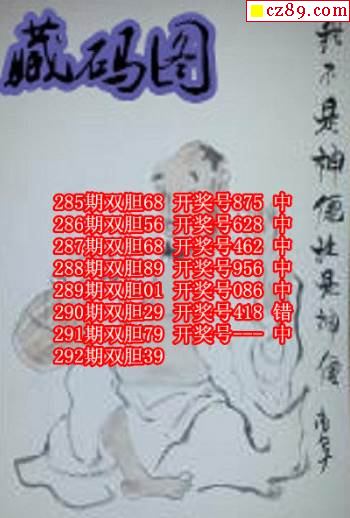 cz89.com
藏码图
我不是神但
285期双胆68 开奖号875 中
286期双胆56 开奖号628 中
287期双胆68 开奖号462 中
288期双胆89 开奖号956 中
289期双胆01 开奖号086 中
290期双胆29 开奖号418 错
291期双胆79 开奖号--- 中
292期双胆39